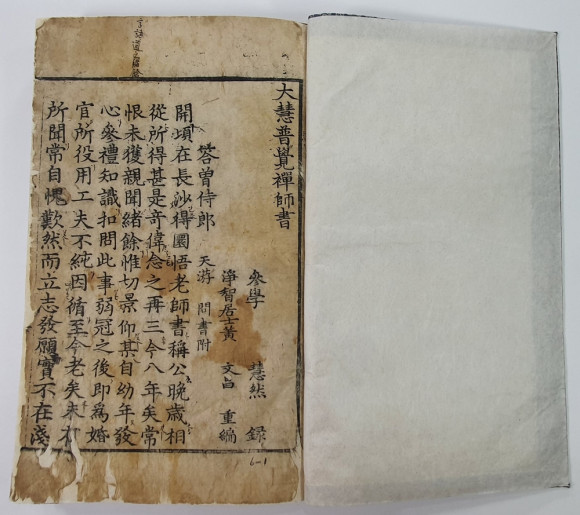 大慧普覺禪師書
叅學 慧然 録
淨智居士黃 文昌 重編
答曾侍郎 天游 問書附
開頃在長沙得圜悟老師書稱公晚歲相
從所得甚是奇偉念之再三今八年矣常
恨未獲親聞緒餘惟切景仰某自幼年發
心叅禮知識扣問此事弱冠之後即爲婚
官所役用工夫不純因循至今老矣未有
所聞常自愧歎然而立志發願實不在淺
6-1